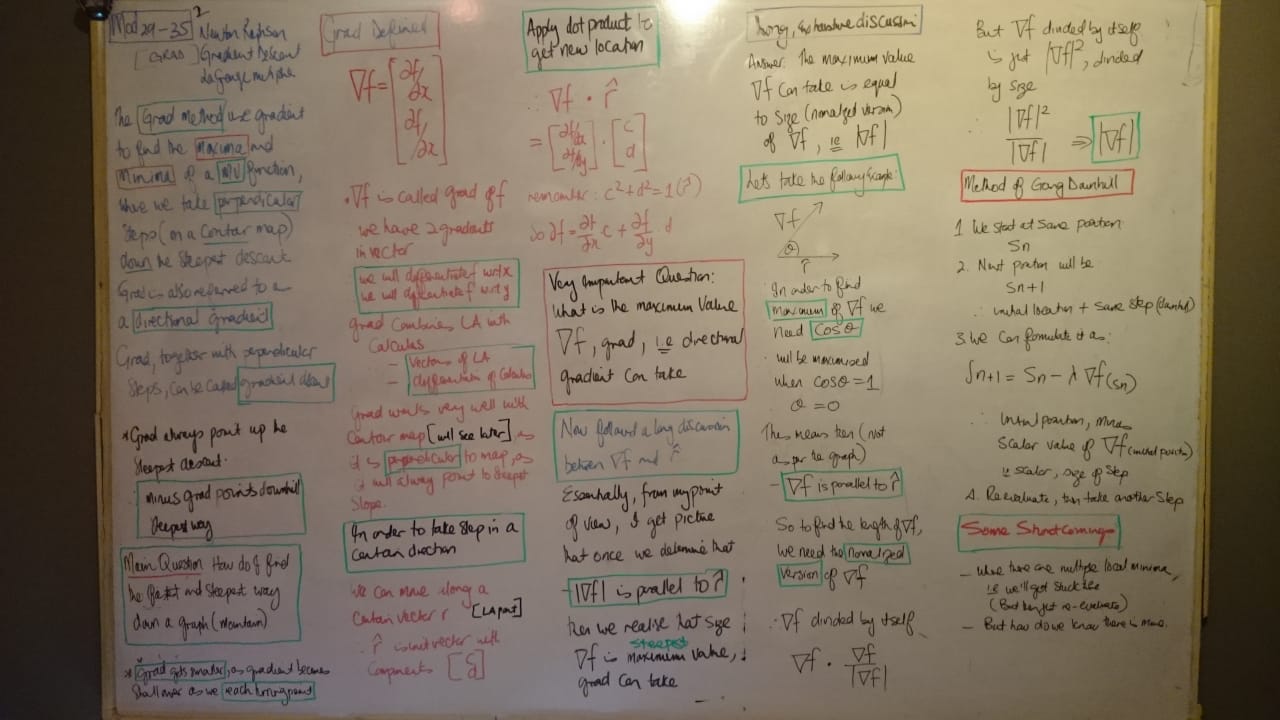 Mod 29-35² Newton Raphson
[GRAD] Gradient Descent
Lagrange multiplier
The Grad method use gradient
to find the maxima and
minima of a MV function,
where we take perpendicular
steps (on a contor map)
down the steepest descent
Grad is also referred to a
a directional gradient
Grad, together with perpendicular
steps, can be called gradient descent
*Grad always point up he
steepest descent.
minus grad points downhill
steepest way
Main Question How do I find
the fastest and steepest way
down a graph (mountain)
* Grad gets smaller, as gradient becomes
shallower as we reach turning point
Grad Defined
∇f = [∂f/∂x
∂f/∂x]
. ∇f is called grad of f
we have 2 gradients
in vector
we will differentiate f wrt x
we will differentiate f wrt y
grad combines LA with
Calculus
- Vectors of LA
- differentiation of Calculus
Grad works very well with
Contour map [will see later], as
it is perpendicular to map, as
it will always point to steepest
slope.
In order to take step in a
certain direction
We can move along a
Certain vector r [LA part]
∴ r̂ is unit vector with
Components [c
d]
Apply dot product to
get new location
∴ ∇f · r̂
= [∂f/∂x
∂f/∂y] · [c
d]
remember: c²+d²=1 (r̂)
So ∂f = ∂f/∂x c + ∂f/∂y . d
Very Important Question:
What is the maximum value
∇f, grad, ie directional
gradient can take
Now followed a long discussion
between ∇f and r̂
Essentially, from my point
of view, I get picture
that once we determine that
- |∇f| is parallel to r̂
then we realise that size
steepest
∇f is maximum value,
grad can take
Long, exhaustive discussion
Answer: The maximum value
∇f can take is equal
to size (normalized version)
of ∇f, ie |∇f|
Lets take the following example:
∇f
θ
r̂
In order to find
maximum of ∇f we
need cosθ
∴ will be maximised
when cosθ = 1
θ = 0
This means then (not
as per the graph)
- ∇f is parallel to r̂
So to find the length of ∇f,
we need the normalized
version of ∇f
∴ ∇f divided by itself
∇f · ∇f/|∇f|
But ∇f divided by itself
is just |∇f|², divided
by size
∴ |∇f|²/|∇f| ⇒ |∇f|
Method of Going Downhill
1 We start at some position:
Sn
2. Next position will be
Sn+1
∴ initial location + some step (downhill)
3. We can formulate it as:
Sn+1 = Sn - λ ∇f(Sn)
∴ Initial position, minus
Scalar value of ∇f (initial position)
ie scalar, size of step
4. Re evaluate, then take another step
Some Shortcomings
- Where there are multiple local minima,
ie we'll get stuck there
(But then just re-evaluate)
- But how do we know there is more.